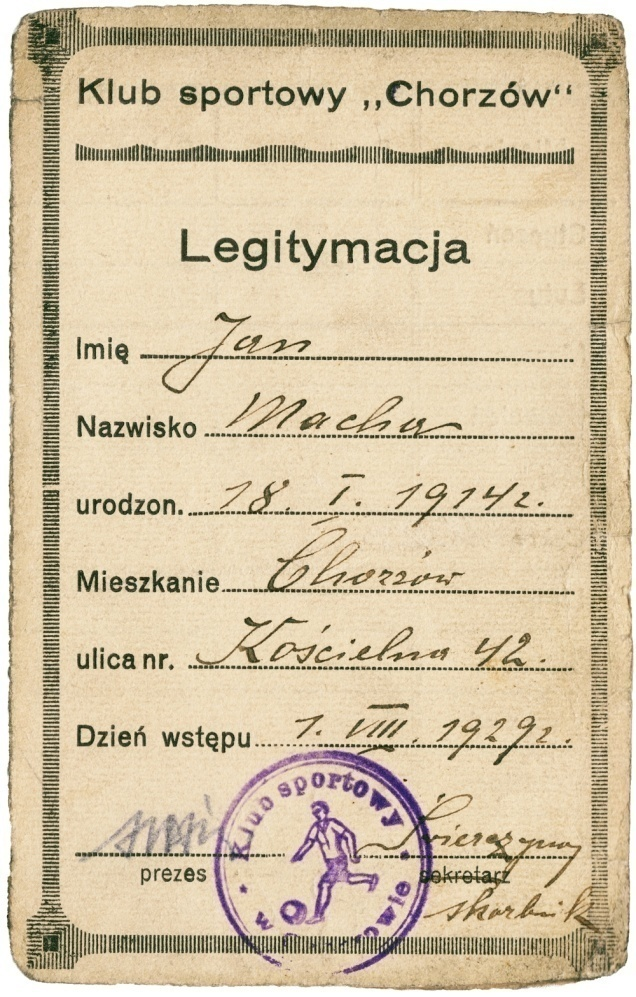 Klub sportowy „Chorzów“
Legitymacja
Imię Jan
Nazwisko Macha
urodzon. 18. I. 1914 r.
Mieszkanie Chorzów
ulica nr. Kościelna 42.
Dzień wstępu 1. VIII. 1929 r.
Klub sportowy
w
prezes
sekretarz
skarbnik